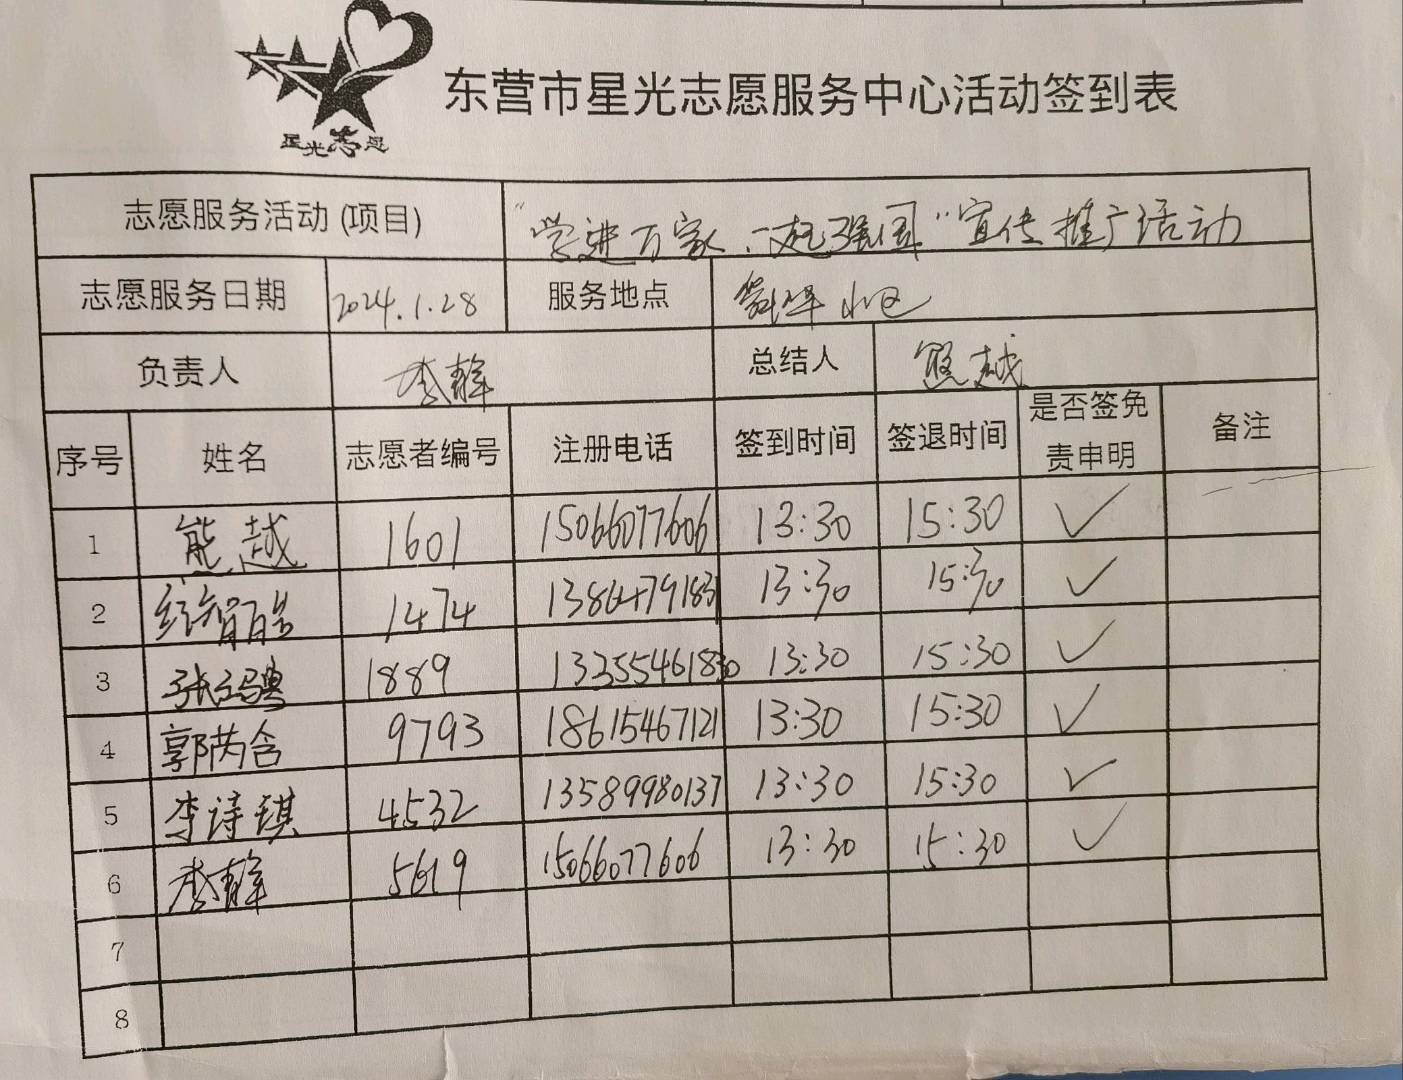 星光志愿
东营市星光志愿服务中心活动签到表
志愿服务活动(项目) “学进万家,一起强国”宣传推广活动
志愿服务日期 2024.1.28 服务地点 小区
负责人 李静 总结人 熊越
序号 姓名 志愿者编号 注册电话 签到时间 签退时间 是否签免责申明 备注
1 熊越 1601 15066077606 13:30 15:30 ✓
2 1474 13:30 15:30 ✓
3 1889 13255461830 13:30 15:30 ✓
4 郭芮含 9793 18615467121 13:30 15:30 ✓
5 李诗琪 4532 13589980137 13:30 15:30 ✓
6 李静 5619 15066077606 13:30 15:30 ✓
7
8